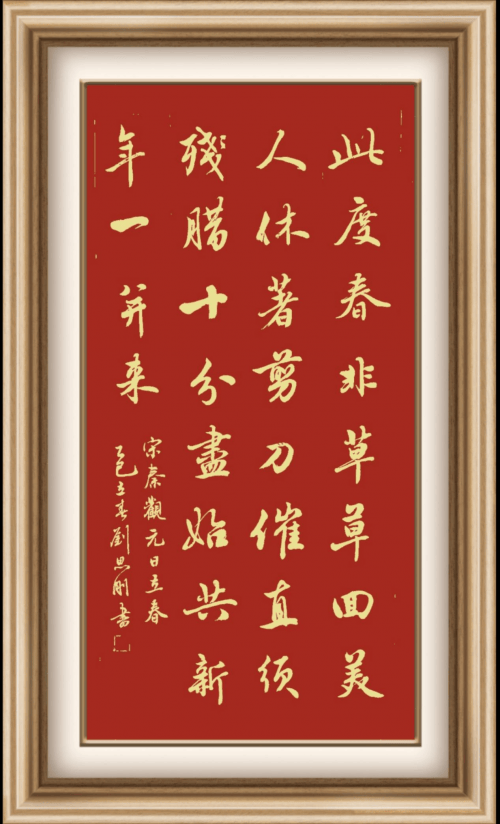 此度春非草草回美
人休著剪刀催直须
残腊十分盡始共新
年一并来
宋秦觀元日立春
乙巳立春劉思刚書